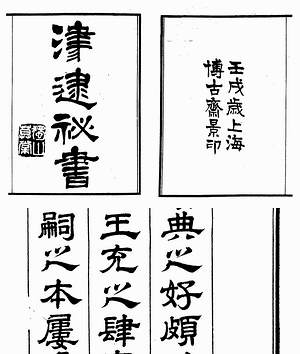 津逮祕書
壬戌歲上海
博古齋景印
典之好頗
王充之肆
嗣之本屢